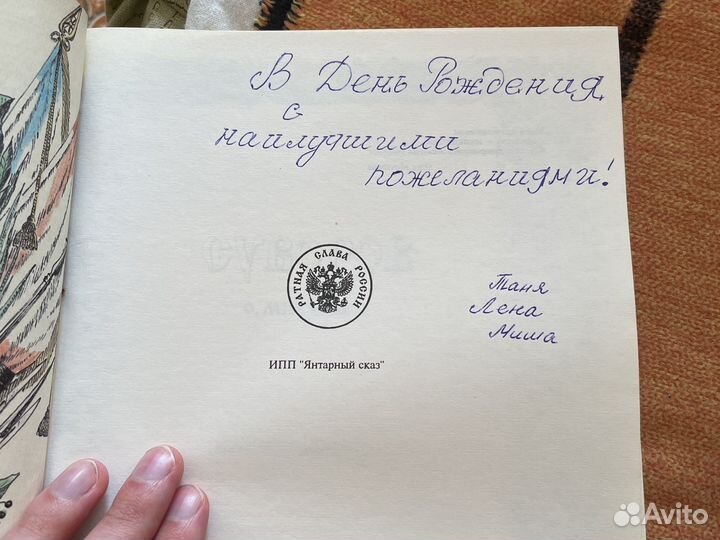 В День Рождения
с
наилучшими
пожеланиями!
РАТНАЯ СЛАВА РОССИИ
Таня
Лена
Миша
ИПП "Янтарный сказ"
Avito